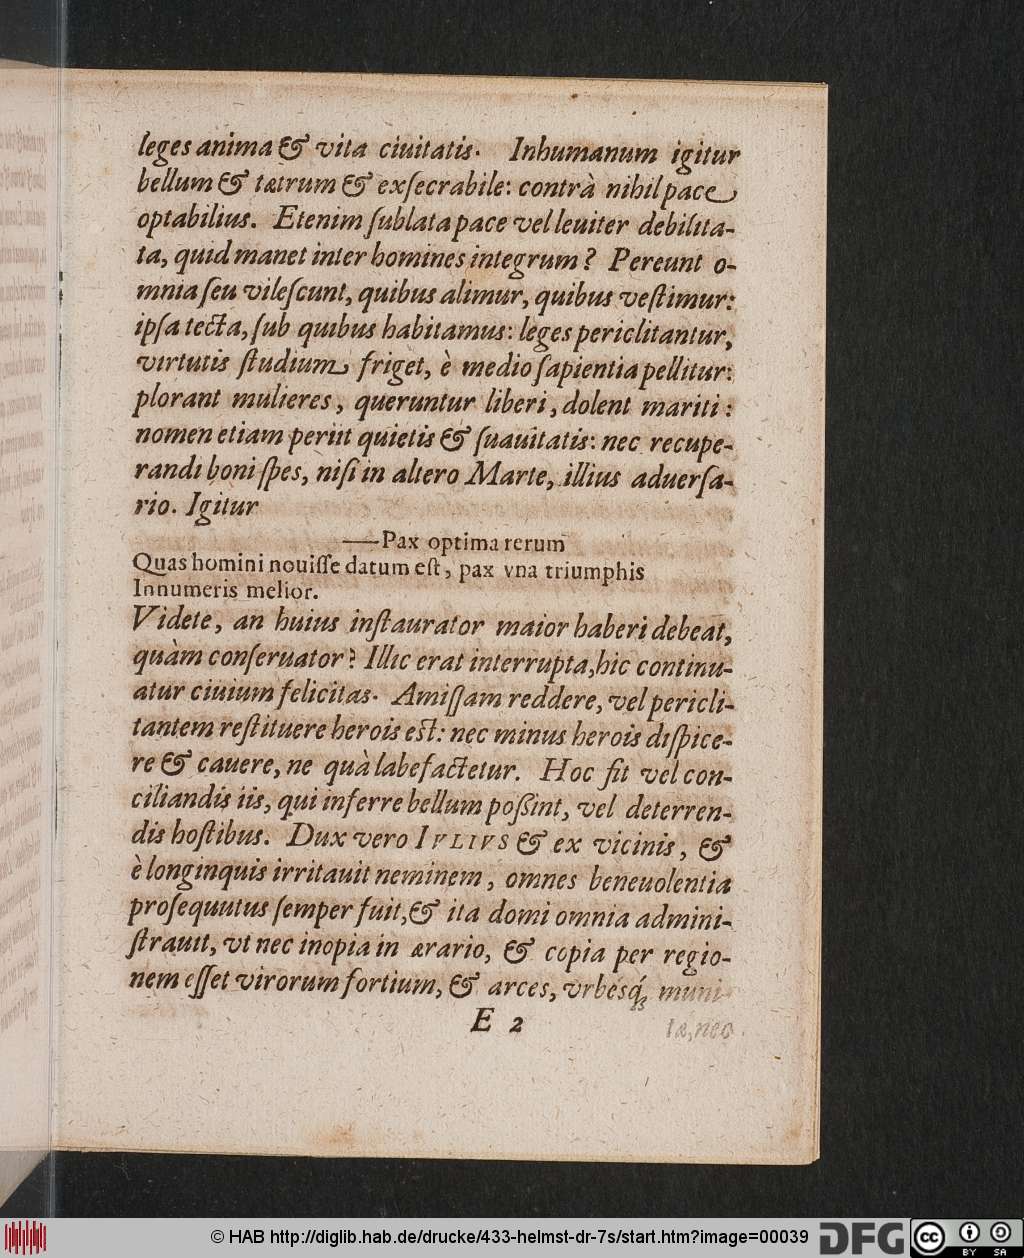 leges anima & vita ciuitatis. Inhumanum igitur
bellum & tætrum & exſecrabile: contrà nihil pace
optabilius. Etenim ſublata pace vel leuiter debilita-
ta, quid manet inter homines integrum? Pereunt o-
mnia ſeu vileſcunt, quibus alimur, quibus veſtimur:
ipſa tecta, ſub quibus habitamus: leges periclitantur,
virtutis ſtudium friget, è medio ſapientia pellitur:
plorant mulieres, queruntur liberi, dolent mariti:
nomen etiam periit quietis & ſuauitatis: nec recupe-
randi boni ſpes, niſi in altero Marte, illius aduerſa-
rio. Igitur
—Pax optima rerum
Quas homini nouiſſe datum eſt, pax vna triumphis
Innumeris melior.
Videte, an huius inſtaurator maior haberi debeat,
quàm conſeruator? Illic erat interrupta, hic continu-
atur ciuium felicitas. Amiſſam reddere, vel pericli-
tantem reſtituere herois est: nec minus herois diſpice-
re & cauere, ne quà labefactetur. Hoc fit vel con-
ciliandis iis, qui inferre bellum poßint, vel deterren-
dis hoſtibus. Dux vero IVLIVS & ex vicinis, &
è longinquis irritauit neminem, omnes beneuolentia
proſequutus ſemper fuit, & ita domi omnia admini-
ſtrauit, vt nec inopia in ærario, & copia per regio-
nem eſſet virorum fortium, & arces, vrbesq́; muni-
E 2
tæ, nec
© HAB http://diglib.hab.de/drucke/433-helmst-dr-7s/start.htm?image=00039
DFG
cc BY SA